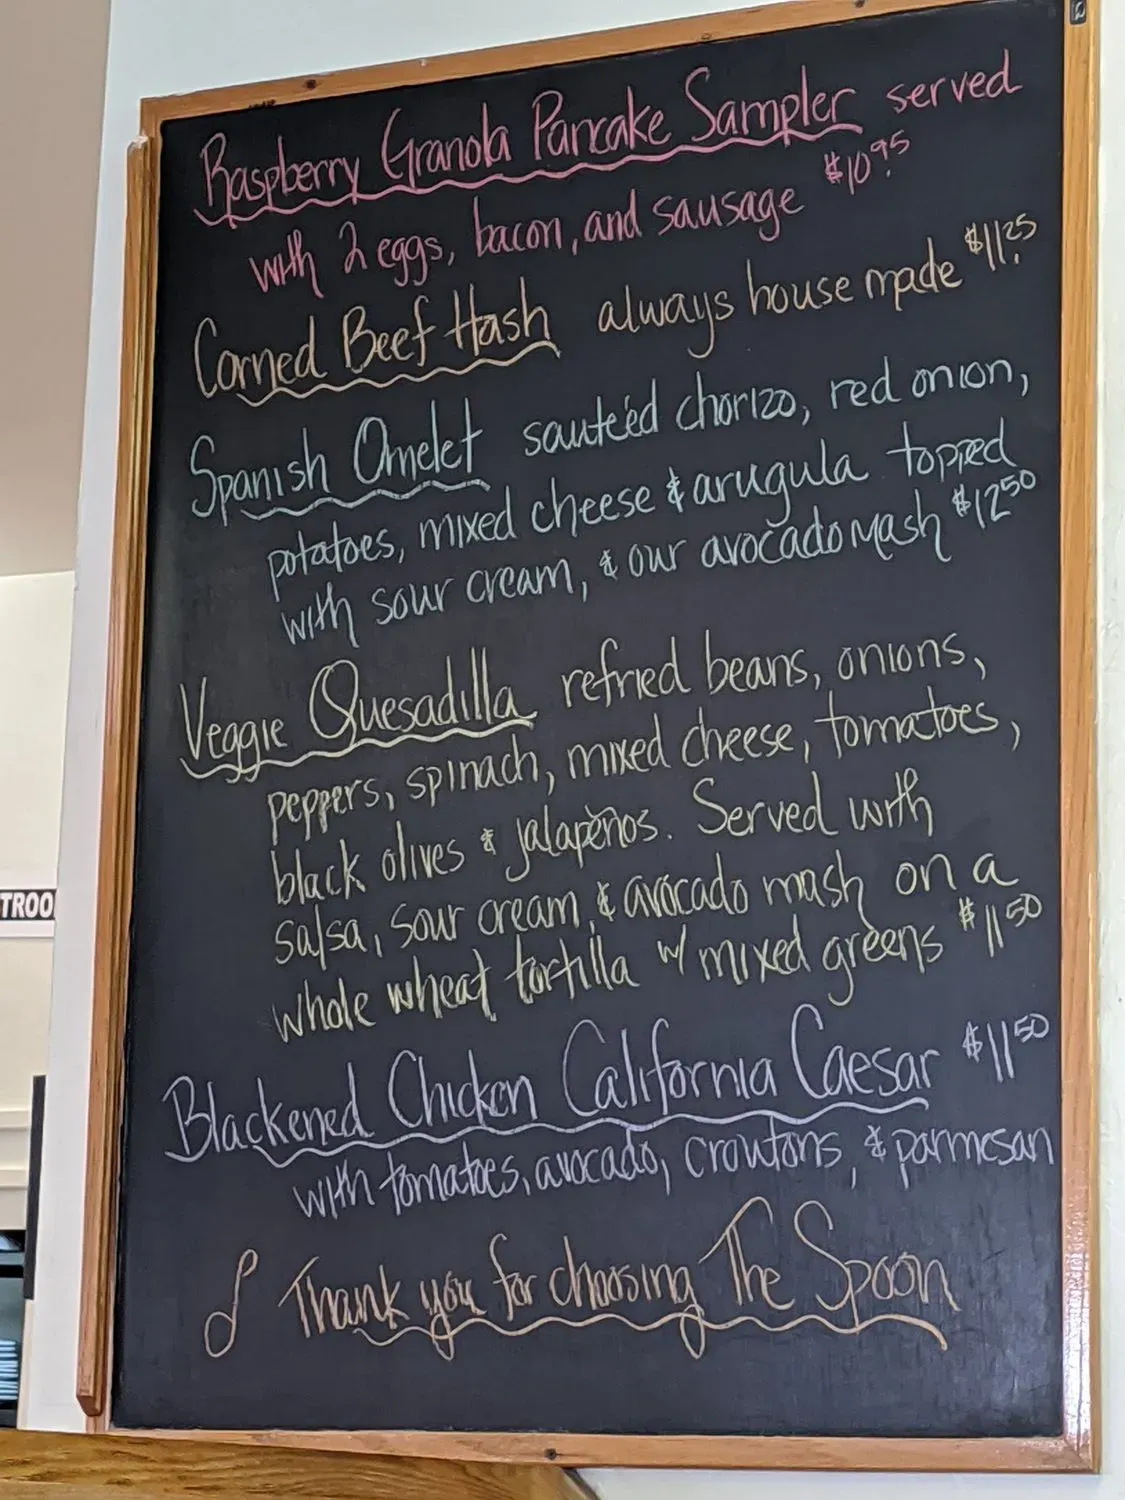 Raspberry Granola Pancake Sampler served
with 2 eggs, bacon, and sausage $10.95
Corned Beef Hash always house made $11.25
Spanish Omelet sauteéd chorizo, red onion,
potatoes, mixed cheese & arugula topped
with sour cream, & our avocado mash $12.50
Veggie Quesadilla refried beans, onions,
peppers, spinach, mixed cheese, tomatoes,
black olives & jalapeños. Served with
salsa, sour cream, & avocado mash on a
whole wheat tortilla w/ mixed greens $11.50
Blackened Chicken California Caesar $11.50
with tomatoes, avocado, croutons, & parmesan
Thank you for choosing The Spoon
TROO